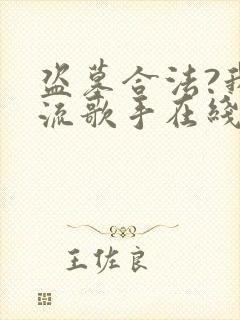 盗墓合法?我
流歌手在线
王佐良